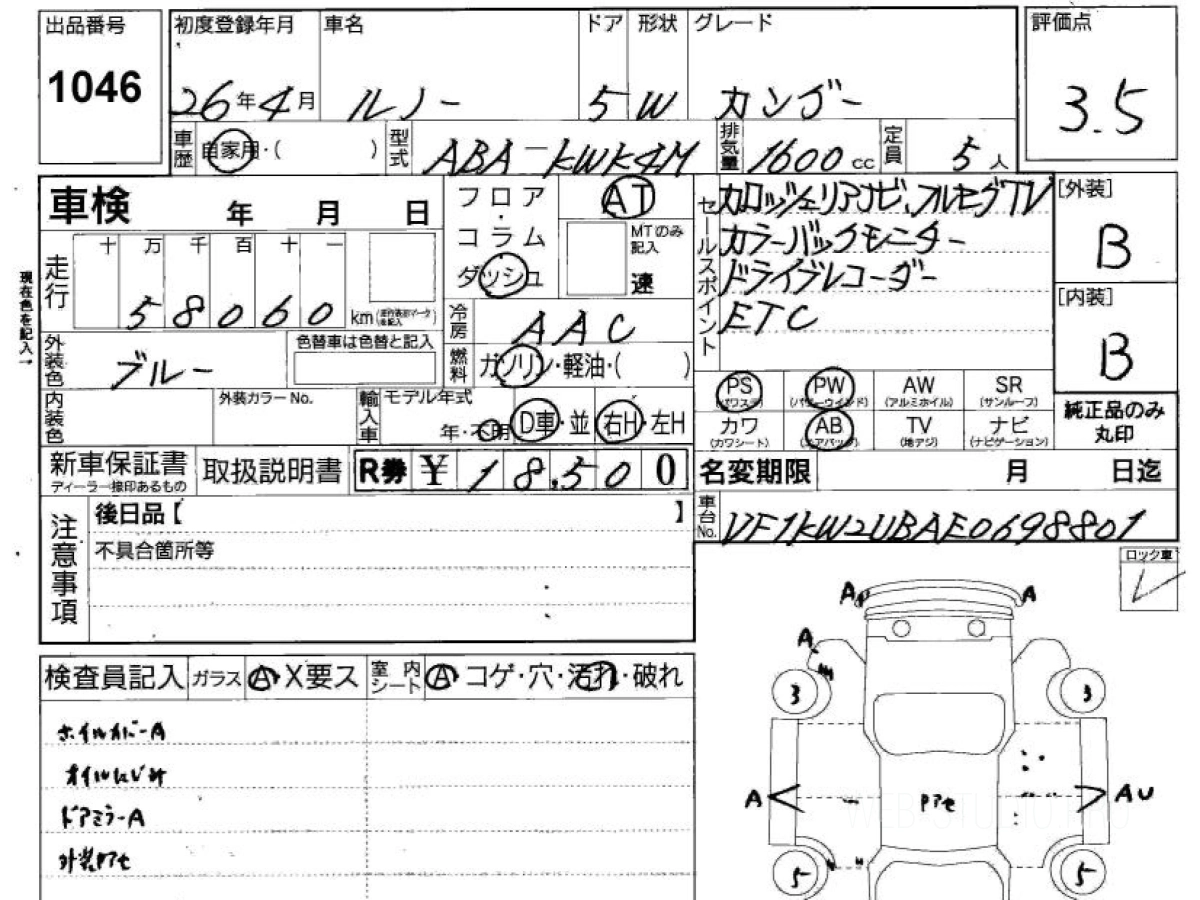 出品番号
1046
初度登録年月
26年4月
車名
ルノー
ドア
5
形状
W
グレード
カングー
評価点
3.5
車歴
自家用・( )
型式
ABA-KWK4M
排気量
1600cc
定員
5人
車検 年 月 日
走行
十 万 千 百 十 一
58060
km
現在色を記入→
フロア・コラム
ダッシュ
AT
MTのみ記入
速
セールスポイント
カロッツェリアナビ、フルセグTV
カラーバックモニター
ドライブレコーダー
ETC
[外装]
B
[内装]
B
冷房
AAC
燃料
ガソリン・軽油・( )
外装色
ブルー
色替車は色替と記入
内装色
外装カラーNo.
輸入車
モデル年式
年・不明
D車・並
右H・左H
PS
(パワステ)
PW
(パワーウインド)
AW
(アルミホイル)
SR
(サンルーフ)
カワ
(カワシート)
AB
(エアバッグ)
TV
(地デジ)
ナビ
(ナビゲーション)
純正品のみ
丸印
新車保証書
ディーラー捺印あるもの
取扱説明書
R券 ¥ 18,500
名変期限 月 日迄
車台No.
VF1KW2UBAE0698801
注意事項
後日品【 】
不具合箇所等
ロック車
検査員記入
ガラス
A・X要ス
室内シート
A・コゲ・穴・汚れ・破れ
ホイルカバーA
オイルにじみ
ドアミラーA
外装色アセ
A A
A
3 3
A 色アセ AU
5 5